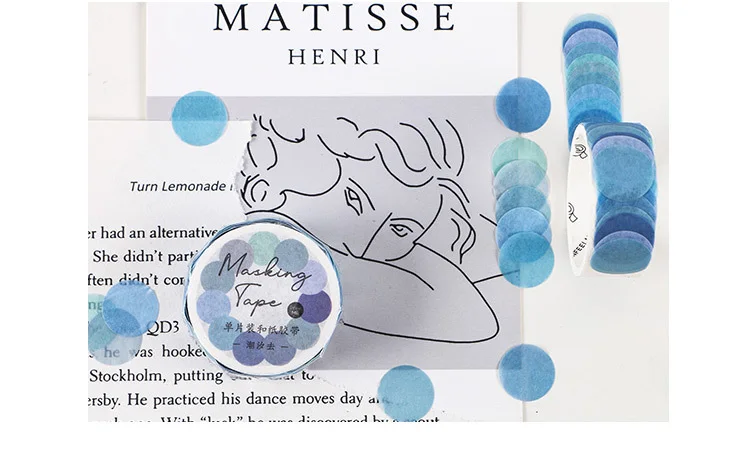 MATISSE
HENRI
Turn Lemonade
er had an alternative
She didn't part
ften didn't con
QD3
he was hooke
Stockholm, putting
ersby. He practiced his dance moves day a
With "luck" he was discovered by a scout
Masking
Tape
单片装和纸胶带
潮汐去